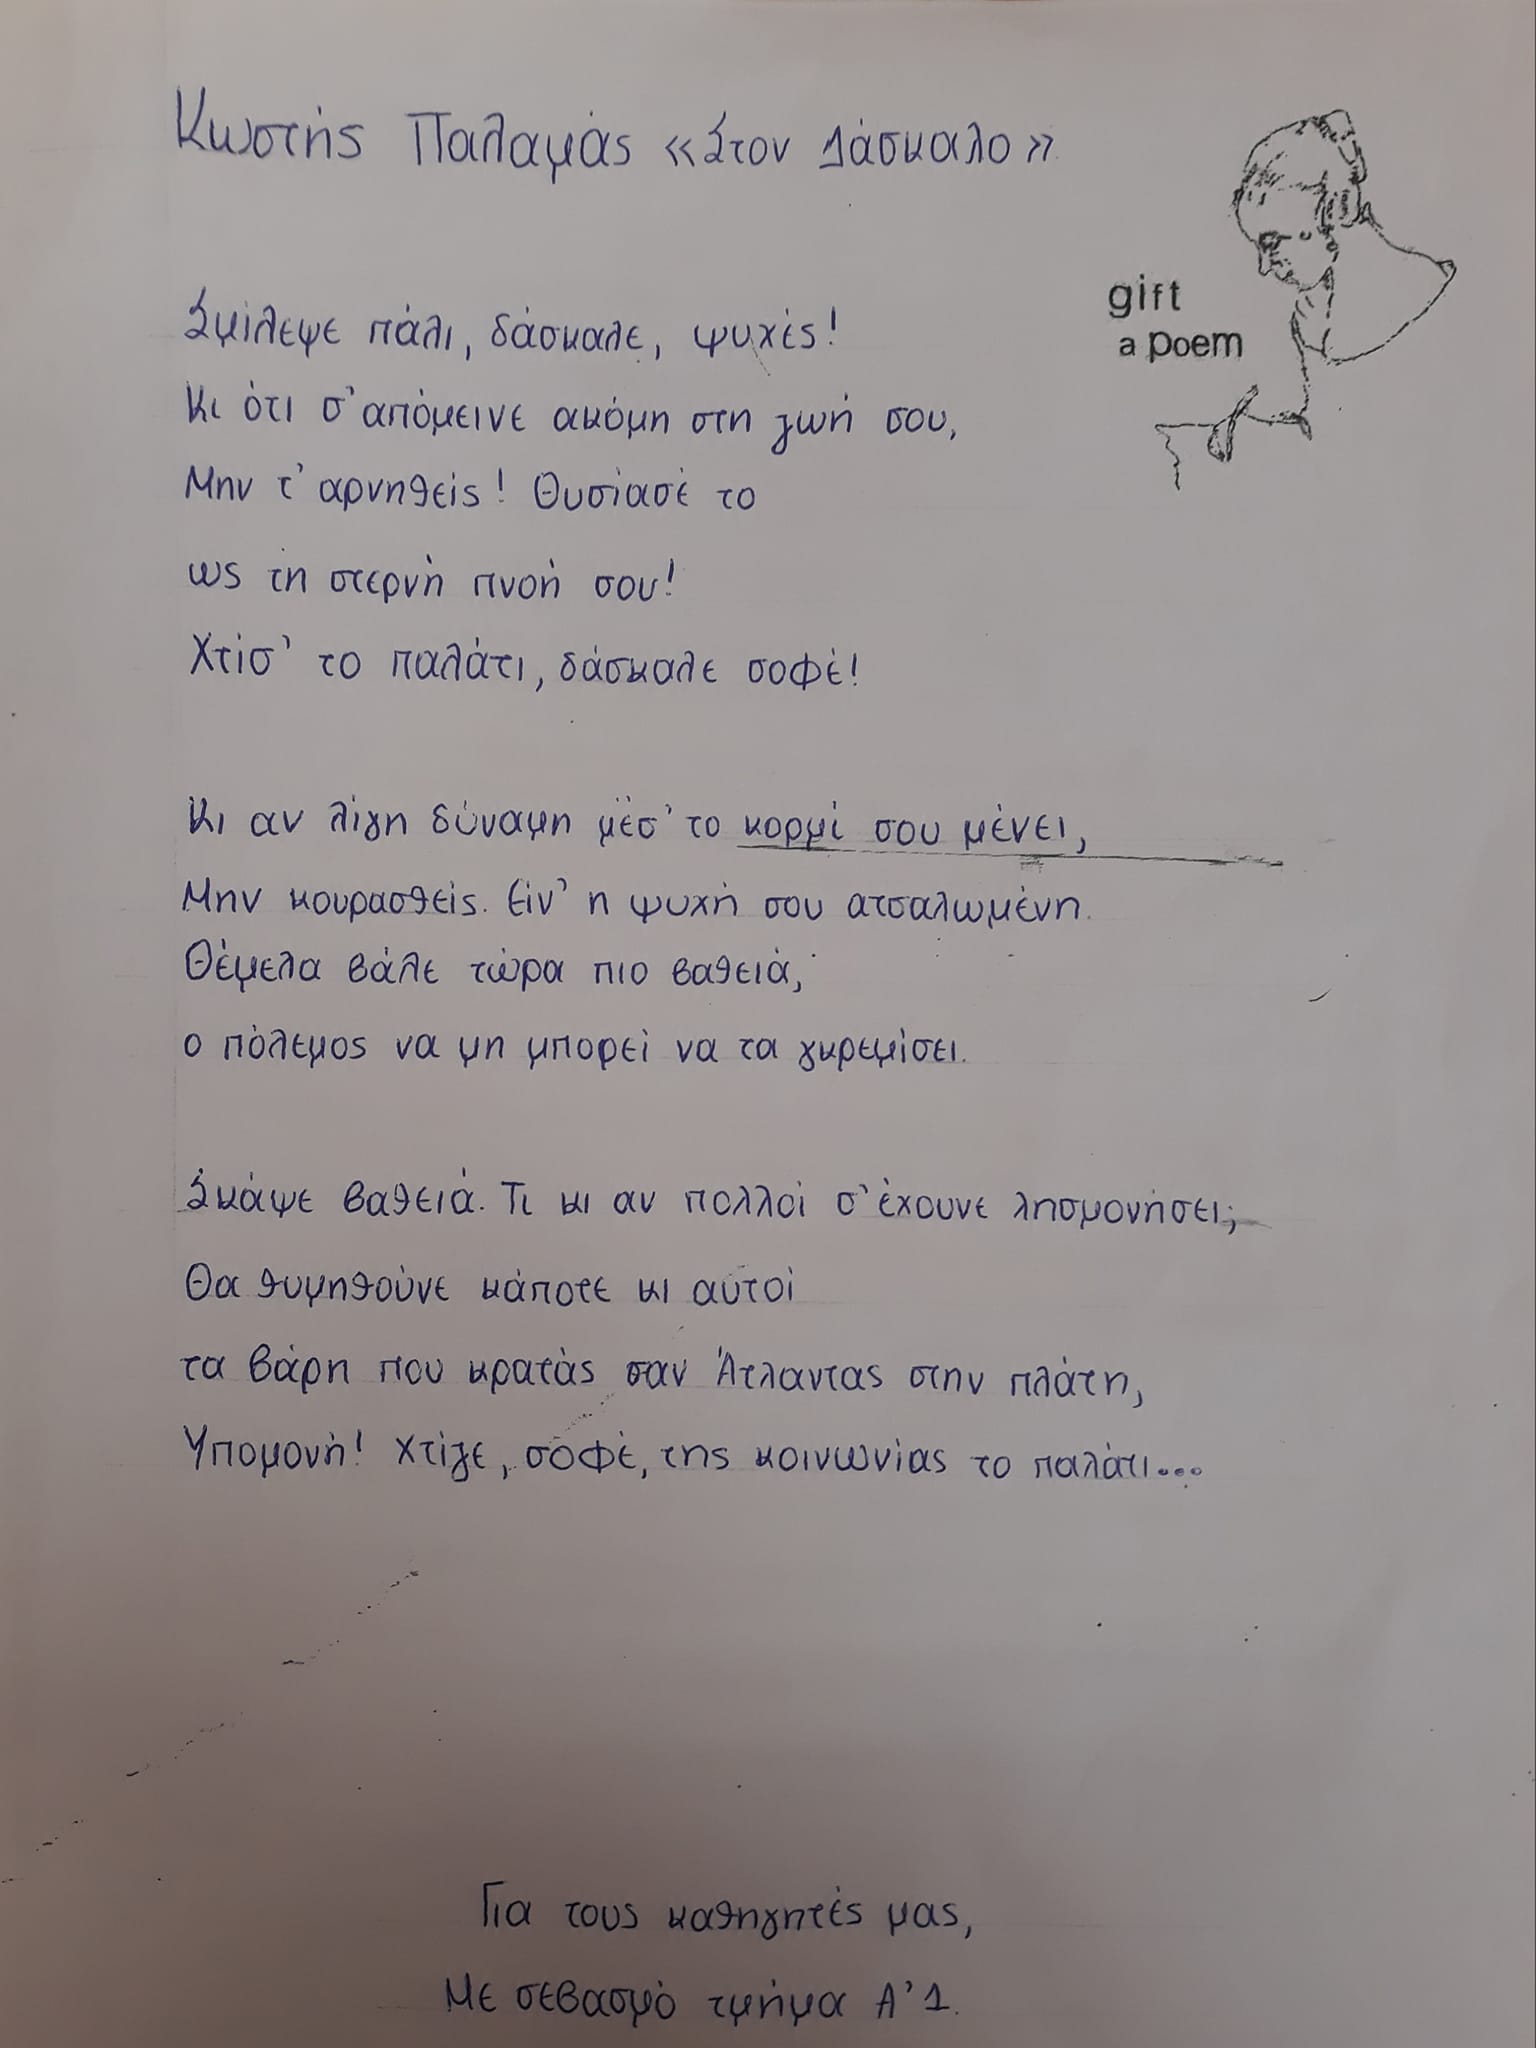 Κωστής Παλαμάς «Στον Δάσκαλο»
gift
a poem
Σμίλεψε πάλι, δάσκαλε, ψυχές!
Κι ότι σ'απόμεινε ακόμη στη ζωή σου,
Μην τ'αρνηθείς! Θυσίασέ το
ως τη στερνή πνοή σου!
Χτίσ' το παλάτι, δάσκαλε σοφέ!
Κι αν λίγη δύναμη μέσ' το κορμί σου μένει,
Μην κουρασθείς. Είν' η ψυχή σου ατσαλωμένη.
Θέμελα βάλε τώρα πιο βαθειά,
ο πόλεμος να μη μπορεί να τα γκρεμίσει.
Σκάψε βαθειά. Τι κι αν πολλοί σ'έχουνε λησμονήσει;
Θα θυμηθούνε κάποτε κι αυτοί
τα βάρη που κρατάς σαν Άτλαντας στην πλάτη,
Υπομονή! Χτίζε, σοφέ, της κοινωνίας το παλάτι...
Για τους καθηγητές μας,
Με σεβασμό τμήμα Α'1.